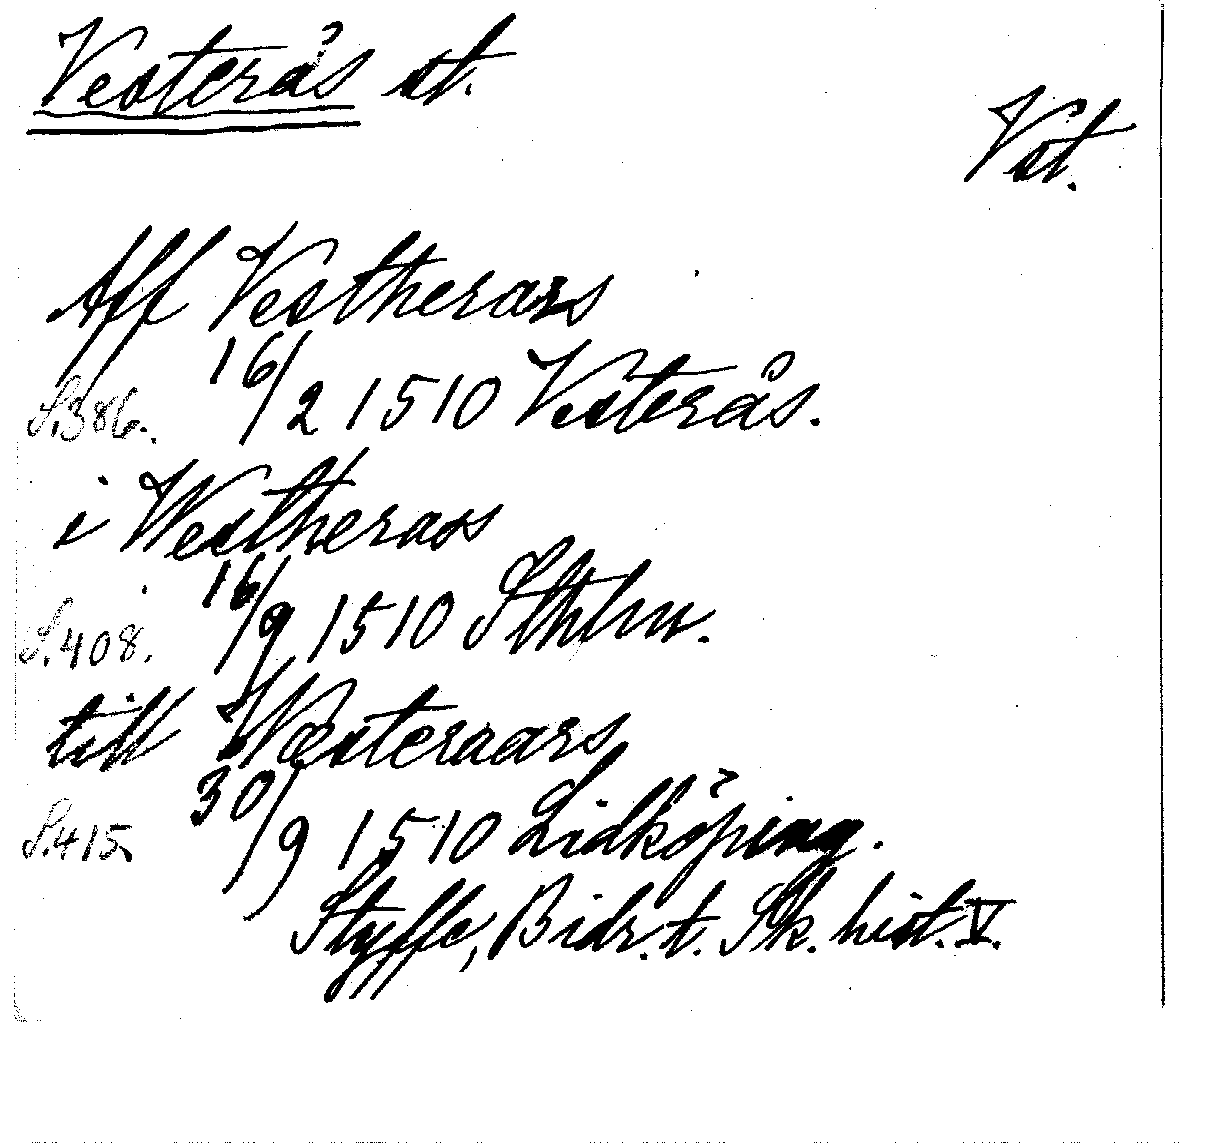 Vesterås st.
Vst.
Aff Vestherars
S.386. 16/2 1510 Vesterås.
i Westherass
S.408. 16/9 1510 Sthlm.
till Wæsteraars
S.415. 30/9 1510 Lidköping.
Styffe, Bidr. t. Sk. hist. V.